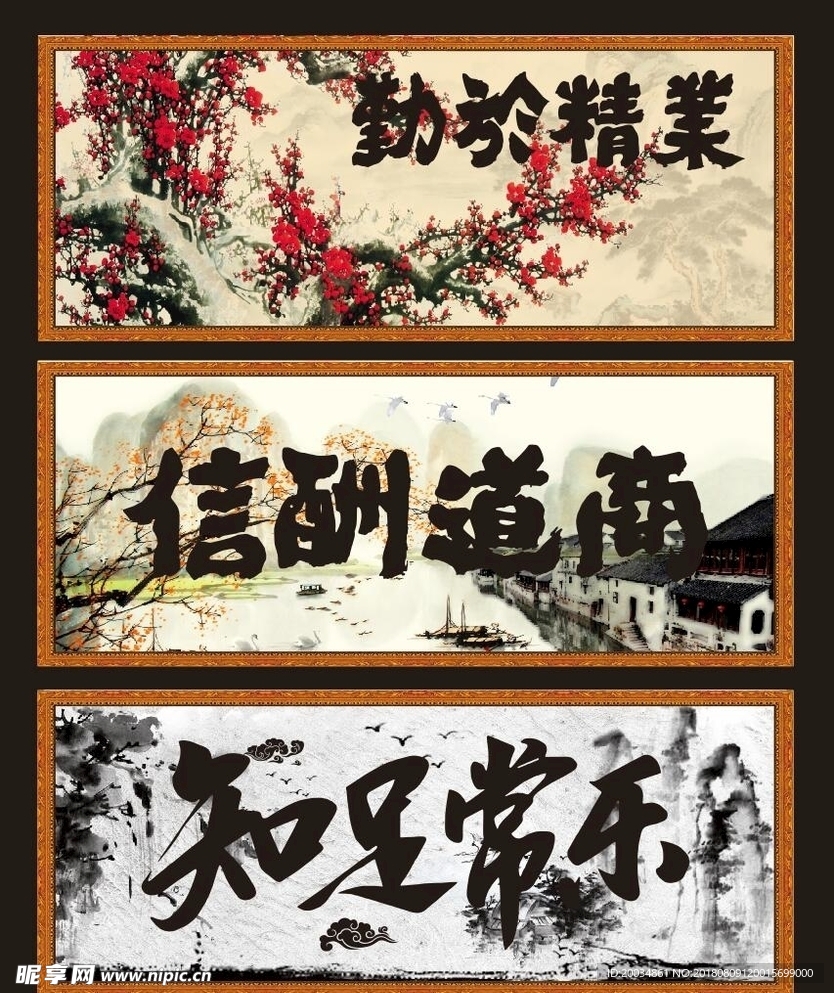 業精於勤
商道酬信
知足常乐
昵享网 www.nipic.cn
ID:20034861 NO:20180809120015699000